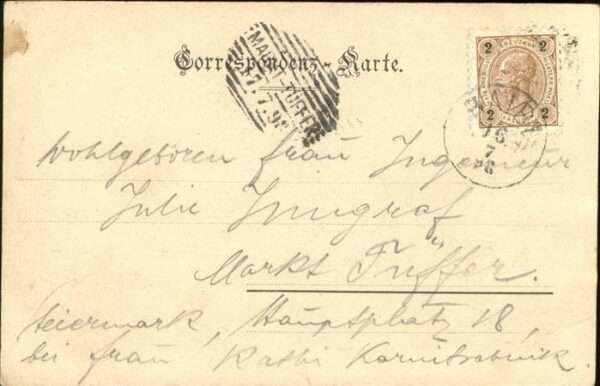 Correspondenz-Karte.
MARKT TÜFFER
17.7.98
2 2
2 2
16
7
98
Wohlgeboren Frau Ingenieur
Julie Jungraf
Markt Tüffer.
Steiermark, Hauptplatz 18,
bei Frau Kathi